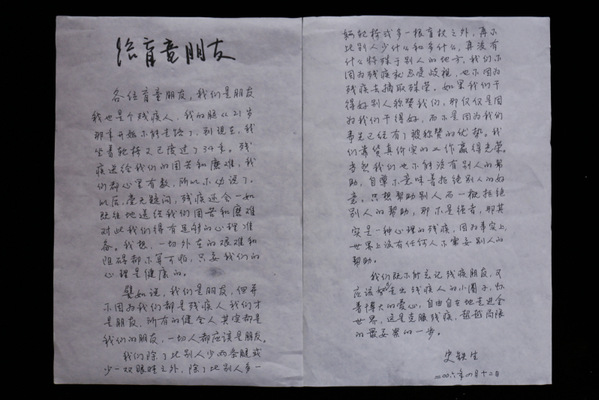 给盲童朋友
各位盲童朋友，我们是朋友
我也是个残疾人，我的腿从21岁
那年开始不能走路了，到现在，我
坐着轮椅又已度过了34年。残
疾送给我们的困苦和磨难，我
们都心里有数，所以不必说了。
以后，毫无疑问，残疾还会一如
既往地送给我们困苦和磨难
对此我们得有足够的心理准
备。我想，一切外在的艰难和
阻碍都不算可怕，只要我们的
心理是健康的。
譬如说，我们是朋友，但并
不因为我们都是残疾人我们才
是朋友，所有的健全人其实都是
我们的朋友，一切人都应该是朋友。
我们除了比别人少两条腿或
少一双眼睛之外，除了比别人多一
辆轮椅或多一根盲杖之外，再不
比别人少什么和多什么，再没有
什么特殊于别人的地方，我们不
因为残疾就忍受歧视，也不因为
残疾去摘取殊荣。如果我们干
得好别人称赞我们，那仅仅是因
为我们干得好，而不是因为我们
事先已经有了被称赞的优势。我
们靠货真价实的工作赢得光荣。
当然我们也不能没有别人的帮
助，自尊不意味着拒绝别人的好
意。只想帮助别人而一概拒绝
别人的帮助，那不是强者，那其
实是一种心理的残疾，因为事实上，
世界上没有任何人不需要别人的
帮助。
我们既不能忘记残疾朋友，又
应该努力走出残疾人的小圈子，怀
着博大的爱心，自由自在地走进全
世界，这是克服残疾、超越局限
的最要紧的一步。
史铁生